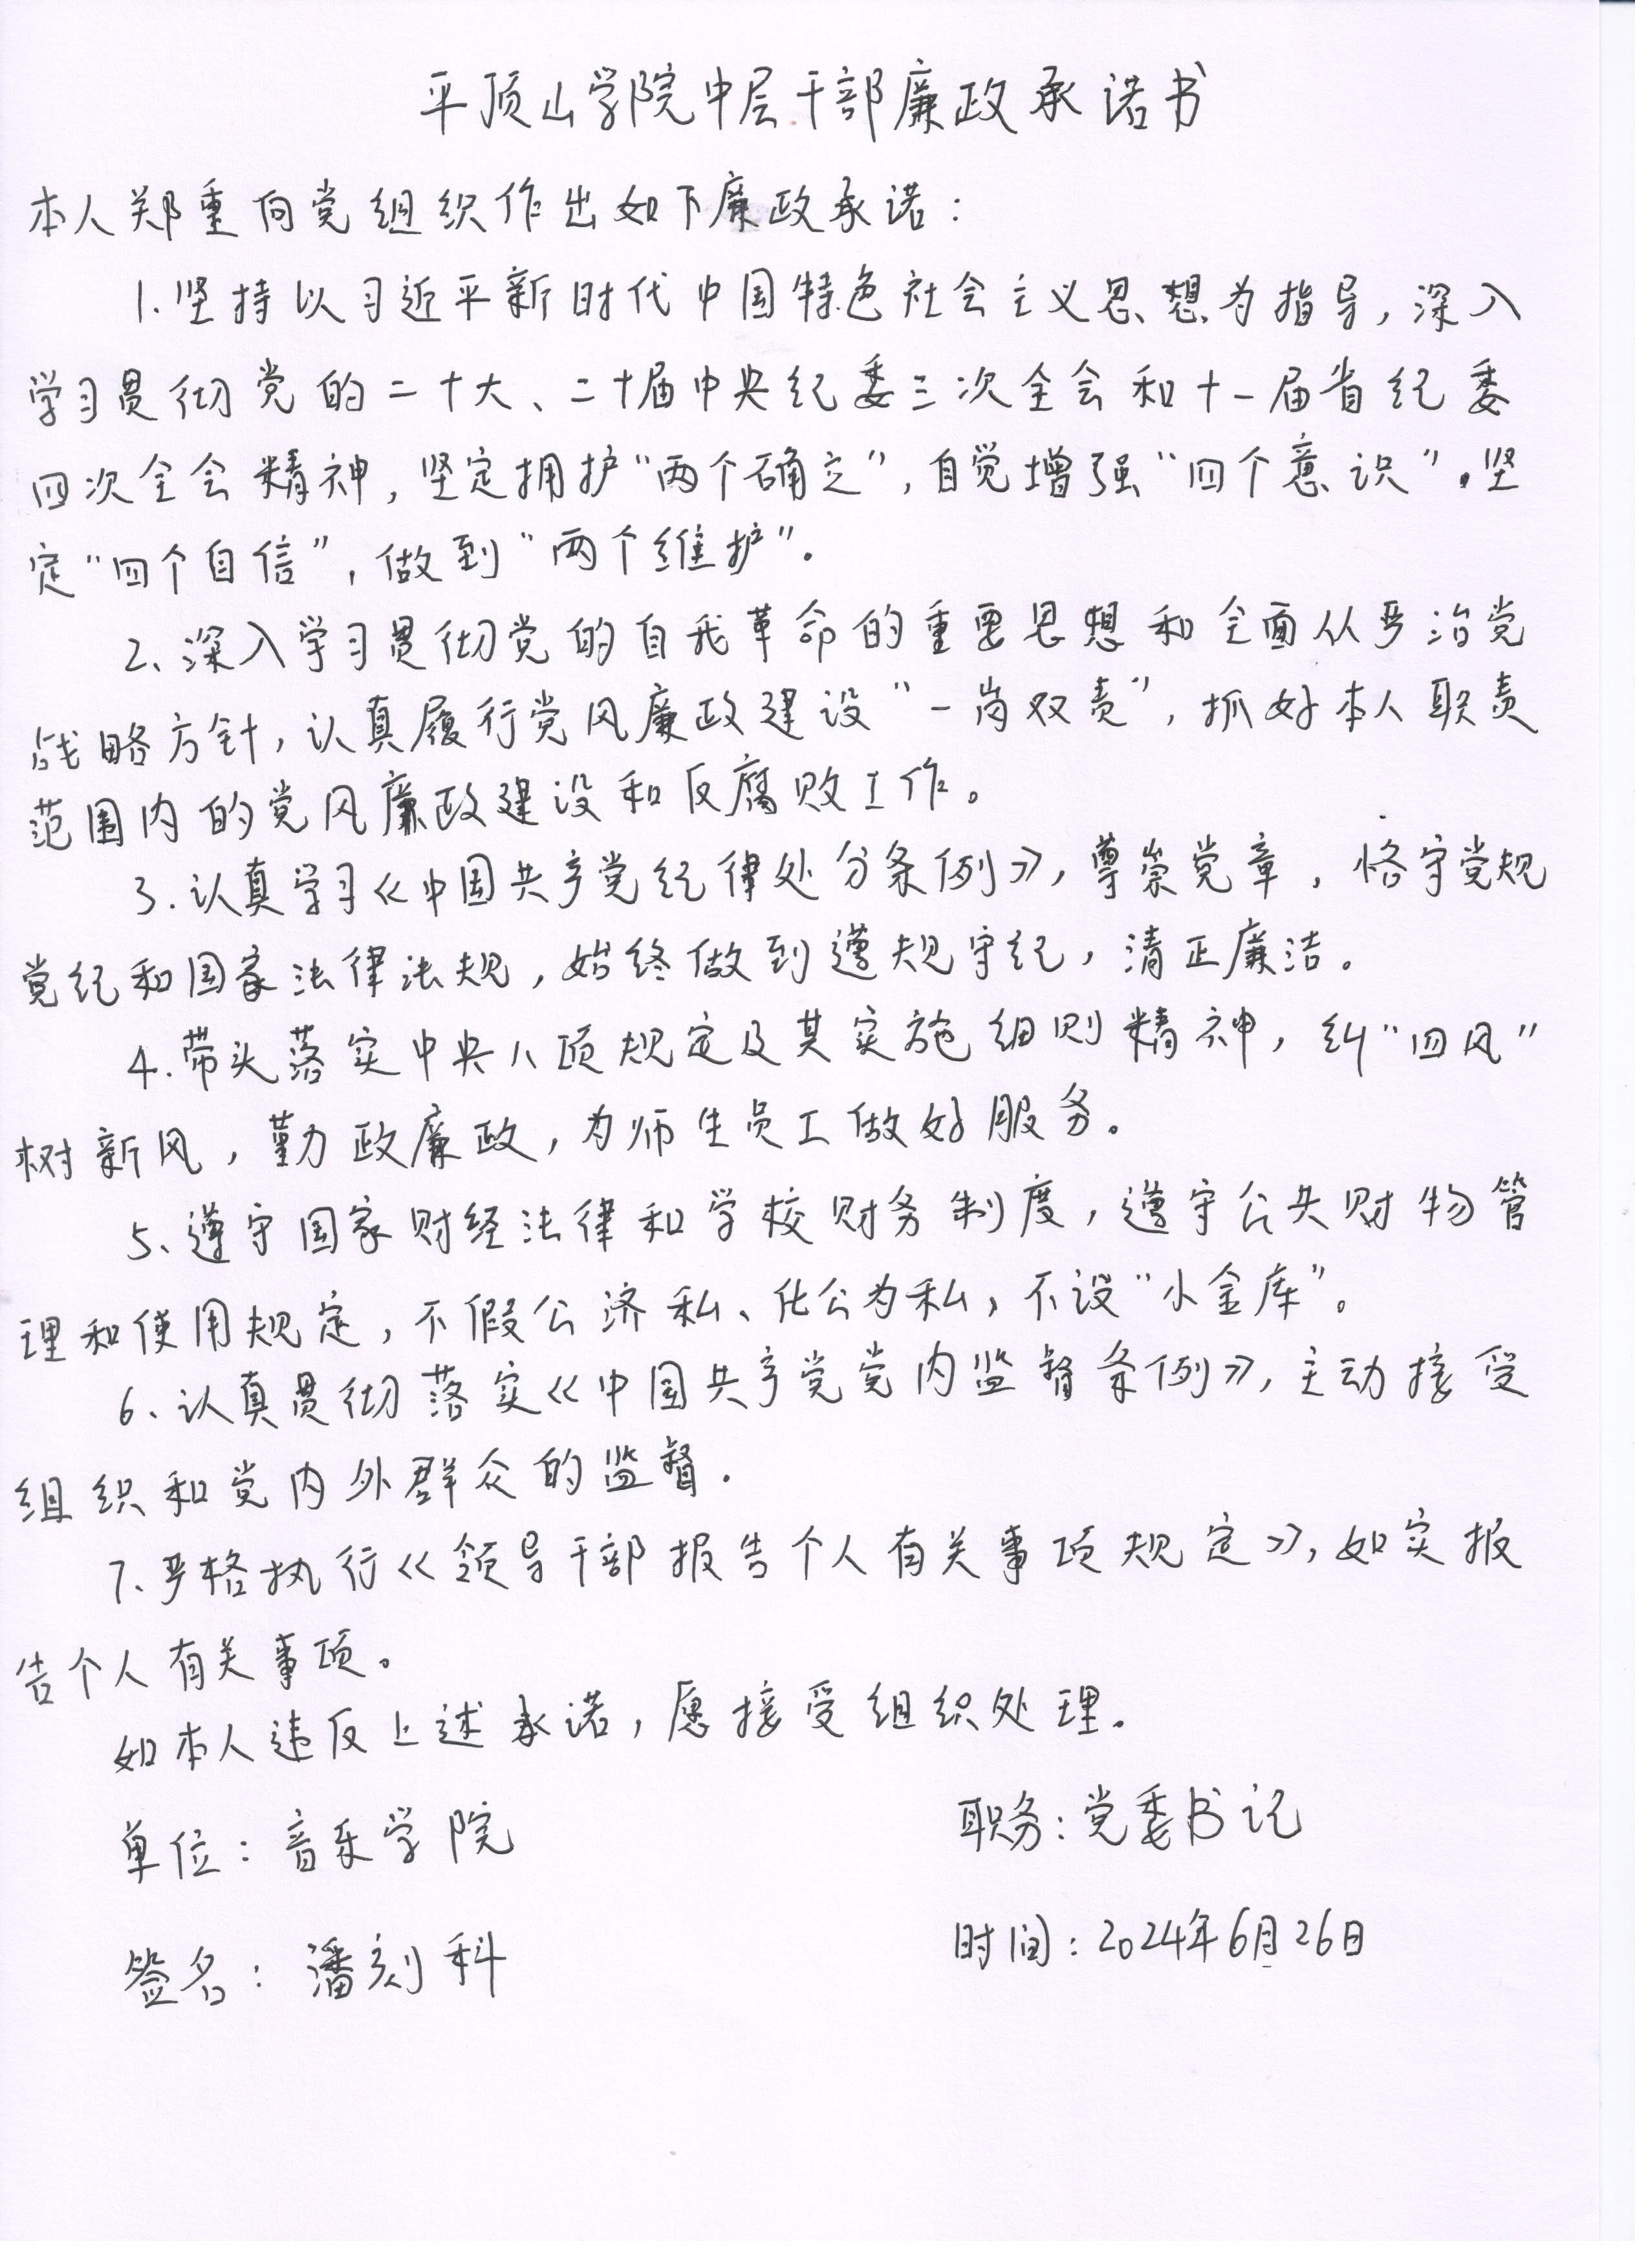 平顶山学院中层干部廉政承诺书
本人郑重向党组织作出如下廉政承诺：
1.坚持以习近平新时代中国特色社会主义思想为指导，深入
学习贯彻党的二十大、二十届中央纪委三次全会和十一届省纪委
四次全会精神，坚定拥护“两个确立”，自觉增强“四个意识”。坚
定“四个自信”，做到“两个维护”。
2、深入学习贯彻党的自我革命的重要思想和全面从严治党
战略方针，认真履行党风廉政建设“一岗双责”，抓好本人职责
范围内的党风廉政建设和反腐败工作。
3.认真学习《中国共产党纪律处分条例》，尊崇党章，恪守党规
党纪和国家法律法规，始终做到遵规守纪，清正廉洁。
4.带头落实中央八项规定及其实施细则精神，纠“四风”
树新风，勤政廉政，为师生员工做好服务。
5、遵守国家财经法律和学校财务制度，遵守公共财物管
理和使用规定，不假公济私、化公为私，不设“小金库”。
6、认真贯彻落实《中国共产党党内监督条例》，主动接受
组织和党内外群众的监督.
7、严格执行《领导干部报告个人有关事项规定》，如实报
告个人有关事项。
如本人违反上述承诺，愿接受组织处理。
单位：音乐学院 职务：党委书记
签名：潘刻科 时间：2024年6月26日